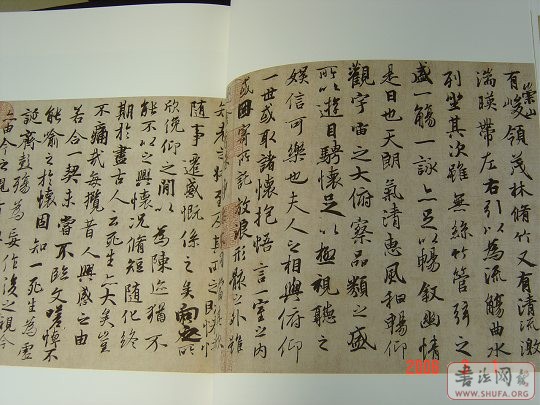 崇山
有峻領茂林脩竹又有清流激
湍暎帶左右引以為流觴曲水
列坐其次雖無絲竹管弦之
盛一觴一詠亦足以暢叙幽情
是日也天朗氣清惠風和暢仰
觀宇宙之大俯察品類之盛
所以遊目騁懷足以極視聽之
娛信可樂也夫人之相與俯仰
一世或取諸懷抱悟言一室之內
或因寄所託放浪形骸之外雖
老之及其所之
隨事遷感慨係之矣向之所
欣俛仰之閒以為陳迹猶不
能不以之興懷況脩短隨化終
期於盡古人云死生亦大矣豈
不痛哉每攬昔人興感之由
若合一契未嘗不臨文嗟悼不
能喻之於懷固知一死生為虛
誕齊彭殤為妄作後之視今
由今之視
2008
书法网
WWW.SHUFA.ORG